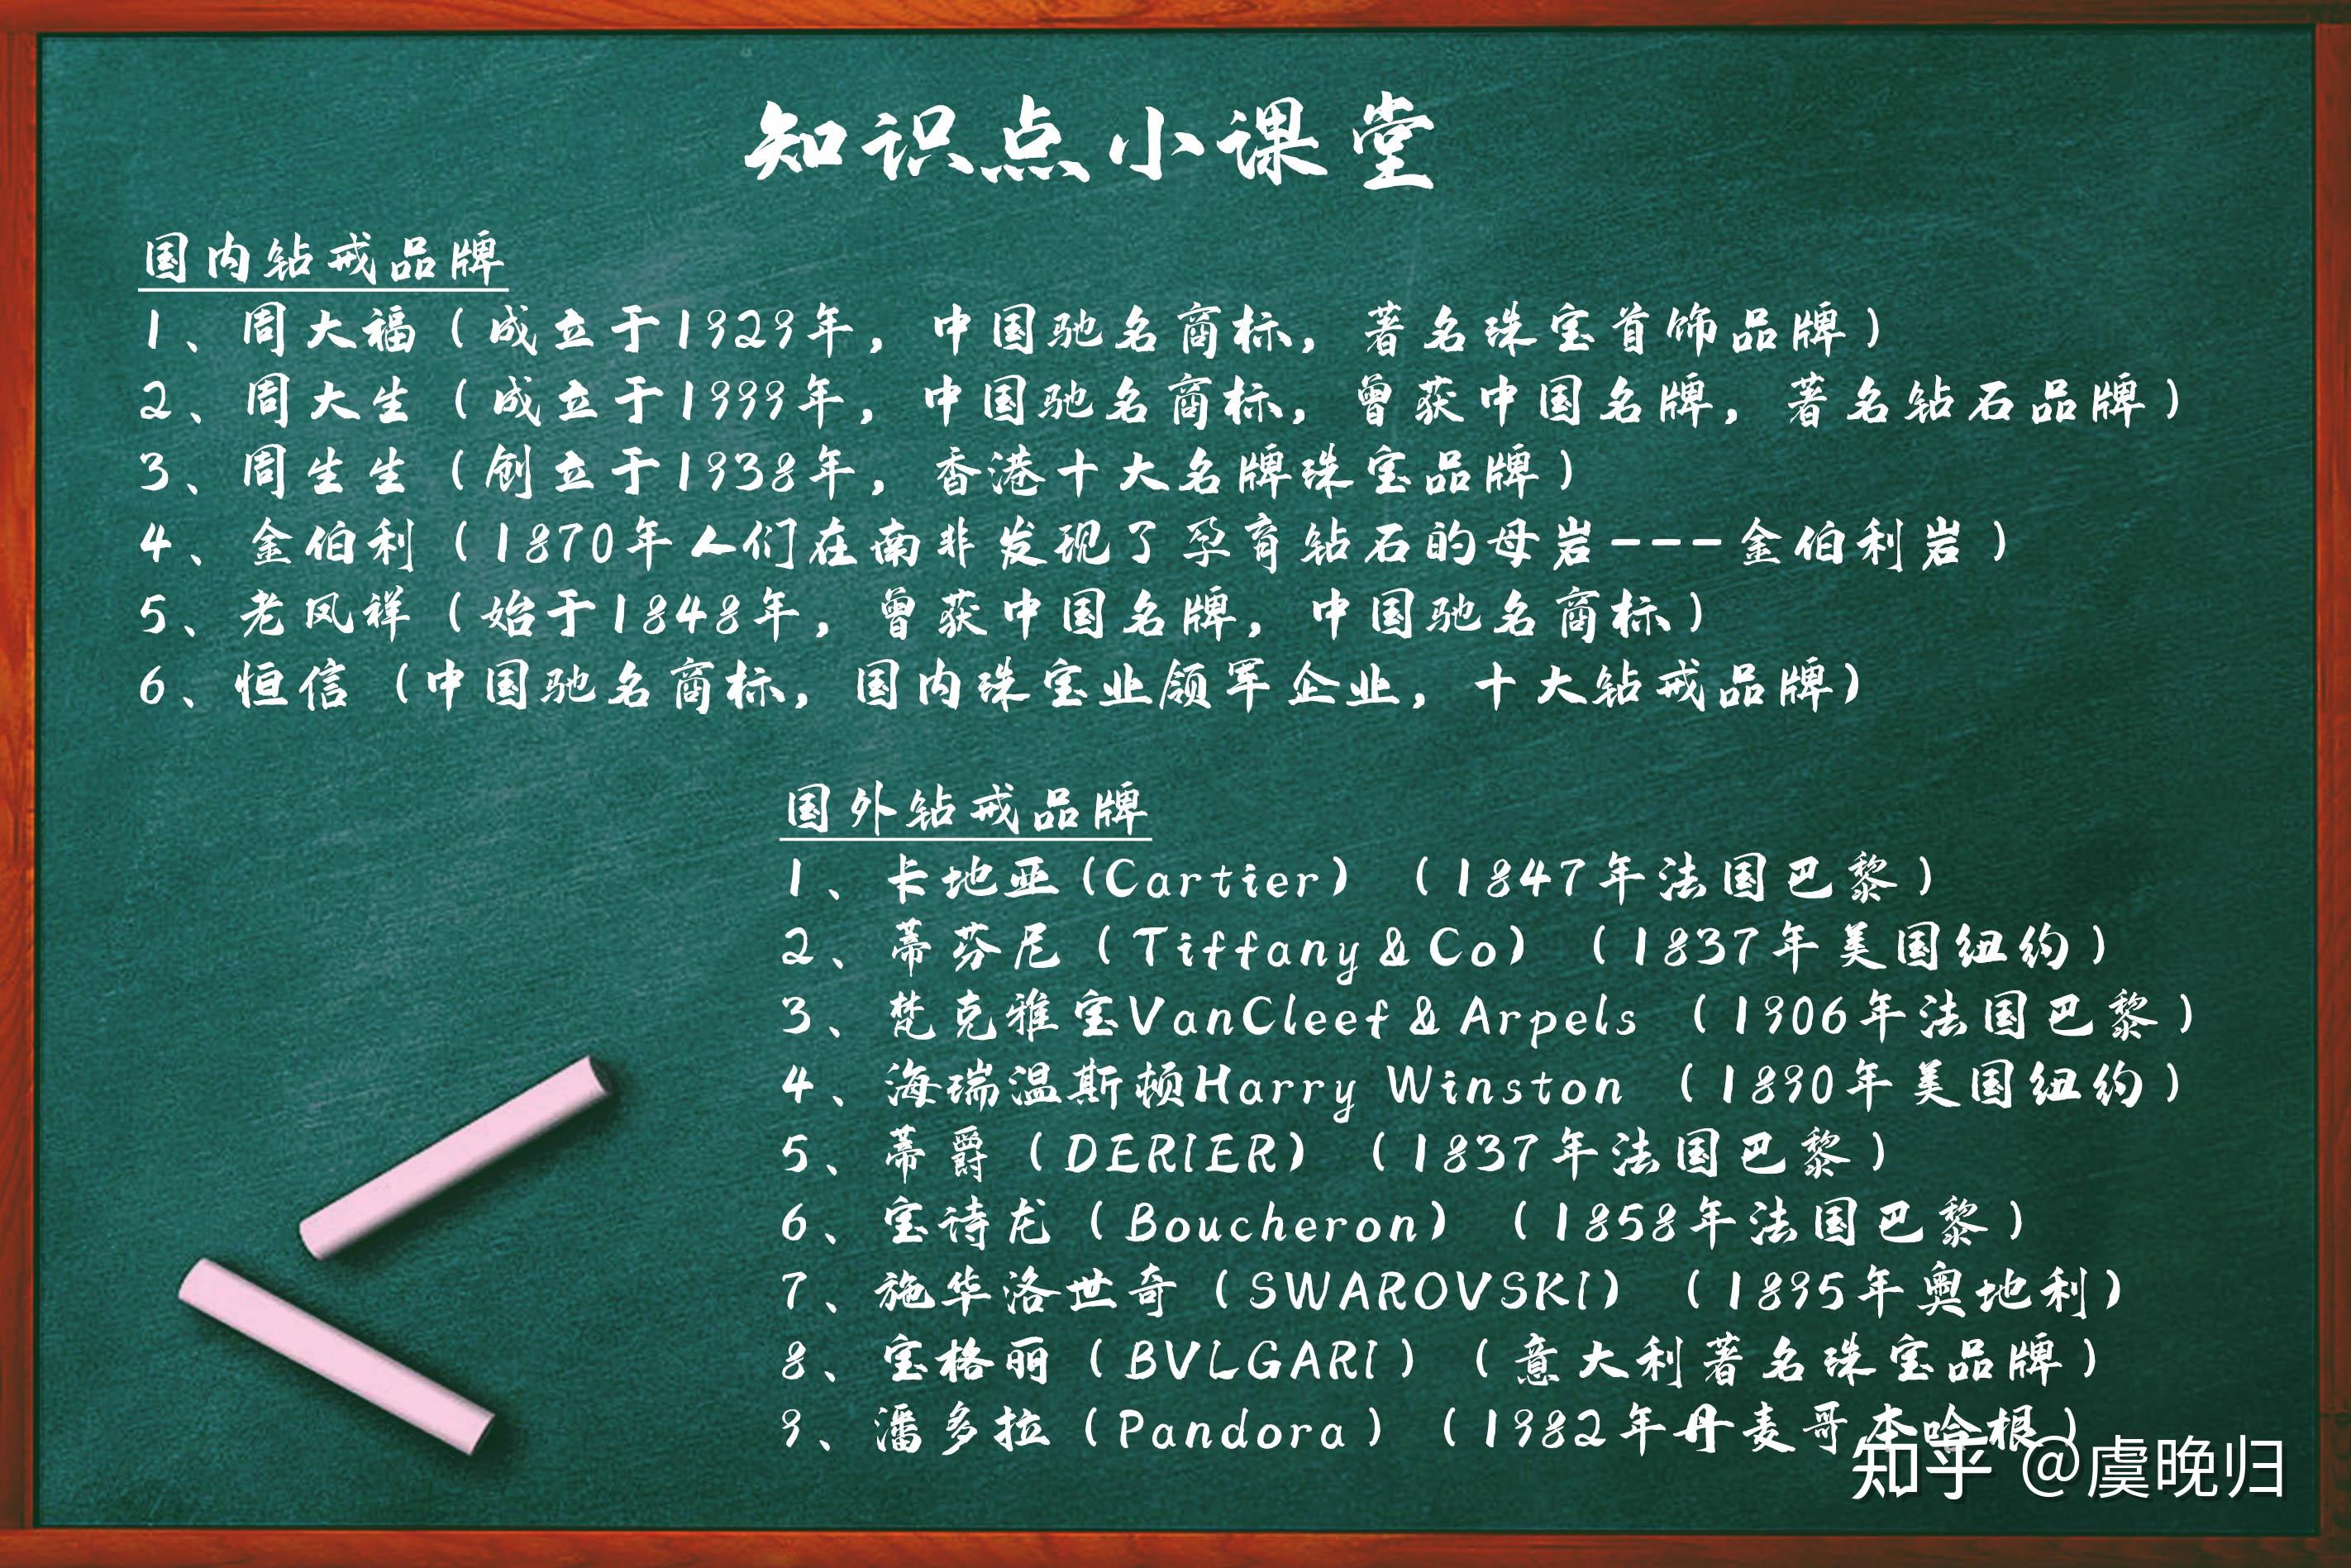 知识点小课堂
国内钻戒品牌
1、周大福（成立于1929年，中国驰名商标，著名珠宝首饰品牌）
2、周大生（成立于1999年，中国驰名商标，曾获中国名牌，著名钻石品牌）
3、周生生（创立于1938年，香港十大名牌珠宝品牌）
4、金伯利（1870年人们在南非发现了孕育钻石的母岩---金伯利岩）
5、老凤祥（始于1848年，曾获中国名牌，中国驰名商标）
6、恒信（中国驰名商标，国内珠宝业领军企业，十大钻戒品牌）
国外钻戒品牌
1、卡地亚（Cartier）（1847年法国巴黎）
2、蒂芬尼（Tiffany&Co）（1837年美国纽约）
3、梵克雅宝VanCleef&Arpels（1906年法国巴黎）
4、海瑞温斯顿Harry Winston（1890年美国纽约）
5、蒂爵（DERIER）（1837年法国巴黎）
6、宝诗龙（Boucheron）（1858年法国巴黎）
7、施华洛世奇（SWAROVSKI）（1895年奥地利）
8、宝格丽（BVLGARI）（意大利著名珠宝品牌）
9、潘多拉（Pandora）（1982年丹麦哥本哈根）
知乎 @虞晚归